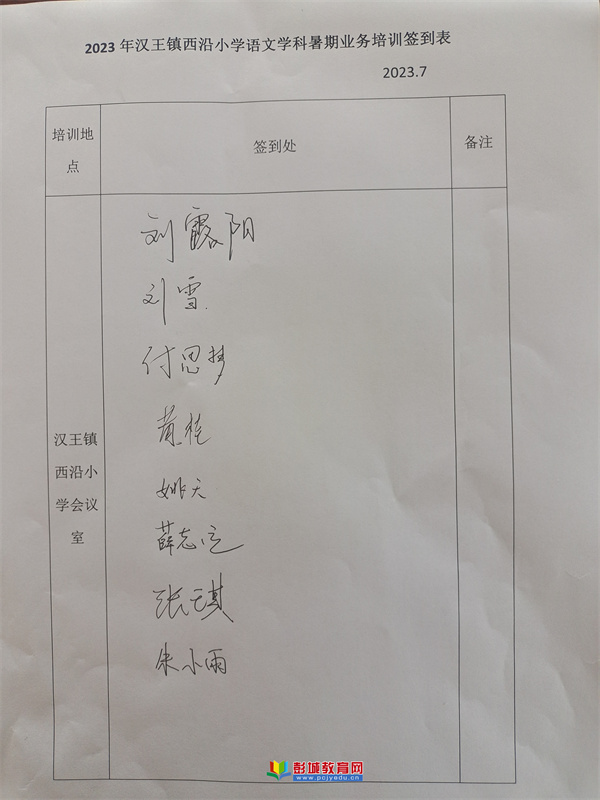 2023年汉王镇西沿小学语文学科暑期业务培训签到表
2023.7
培训地
点
签到处
备注
汉王镇
西沿小
学会议
室
刘露阳
刘雪
付思梦
黄桂
姚天
薛志远
张云琪
朱小雨
彭城教育网
www.pcjyedu.cn